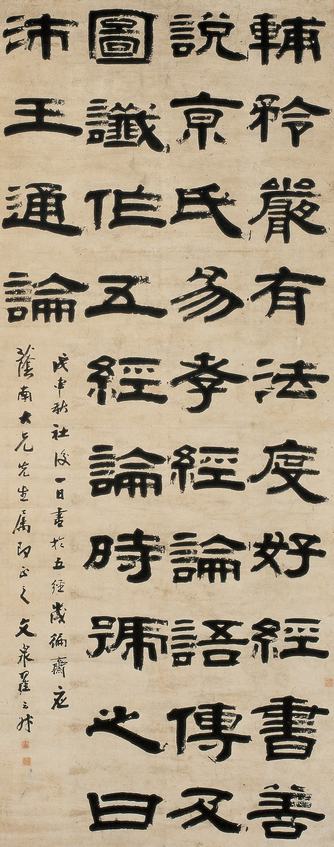 輔矜嚴有法度好經書善
說京氏易孝經論語傳及
圖讖作五經論時號之曰
沛王通論
戊申秋社後一日書於五經歲徧齋應
蔭南大兄先生属即正之文泉翟云升